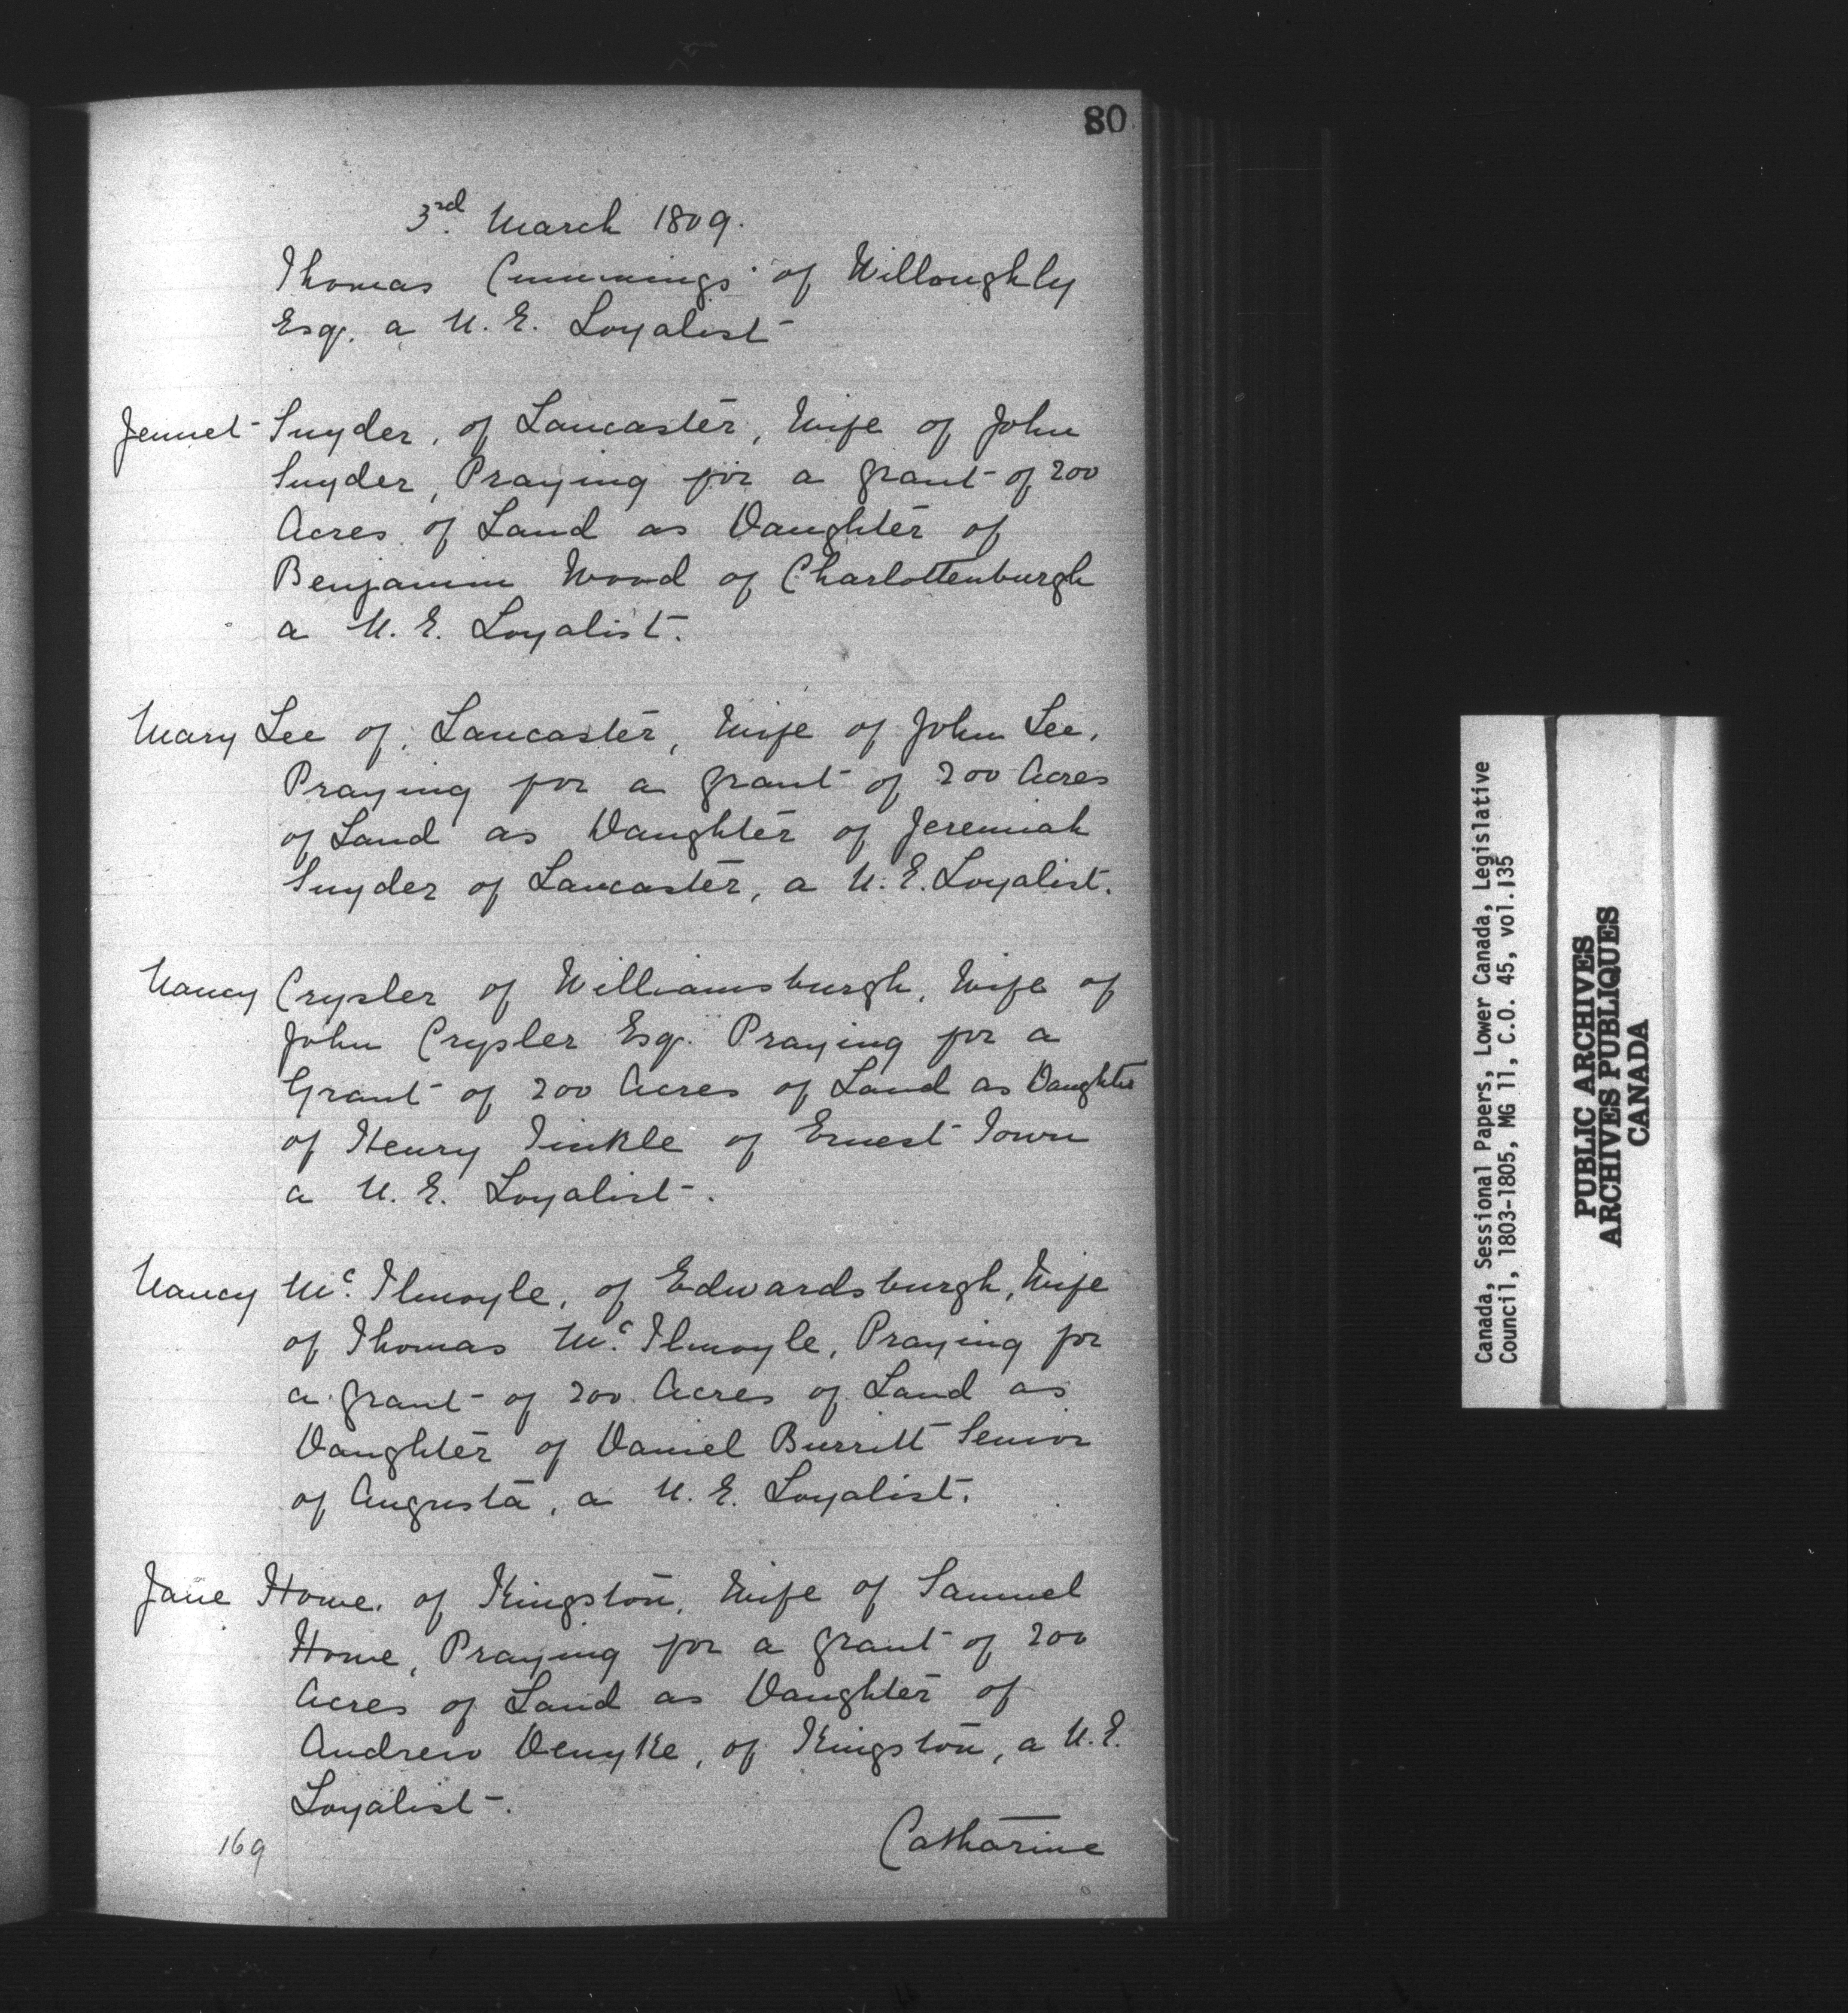 80
3rd. March 1809.
Thomas Cummings of Willoughby
Esqr. a U. E. Loyalist
Jennet Snyder, of Lancaster, Wife of John
Snyder, Praying for a grant of 200
Acres of Land as Daughter of
Benjamin Wood of Charlottenburgh
a U. E. Loyalist.
Mary Lee of, Lancaster, Wife of John Lee,
Praying for a grant of 200 Acres
of Land as Daughter of Jeremiah
Snyder of Lancaster, a U. E. Loyalist.
Nancy Crysler of Williamsburgh, Wife of
John Crysler Esqr. Praying for a
Grant of 200 Acres of Land as Daughter
of Henry Finkle of Ernest Town
a U. E. Loyalist.
Nancy Mc. Ilmoyle, of Edwardsburgh, Wife
of Thomas Mc. Ilmoyle, Praying for
a grant of 200 Acres of Land as
Daughter of Daniel Burritt Senior
of Augusta, a U. E. Loyalist.
Jane Howe, of Kingston, Wife of Samuel
Howe, Praying for a grant of 200
Acres of Land as Daughter of
Andrew Denyke, of Kingston, a U. E.
Loyalist.
Catharine
169
Canada, Sessional Papers, Lower Canada, Legislative
Council, 1803-1805, MG 11, C.O. 45, vol.135
PUBLIC ARCHIVES
ARCHIVES PUBLIQUES
CANADA